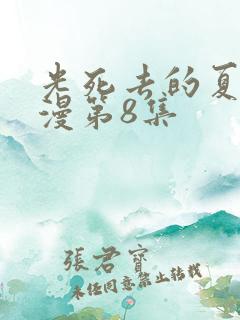 光死去的夏
漫第8集
張君寶
未经同意禁止转载